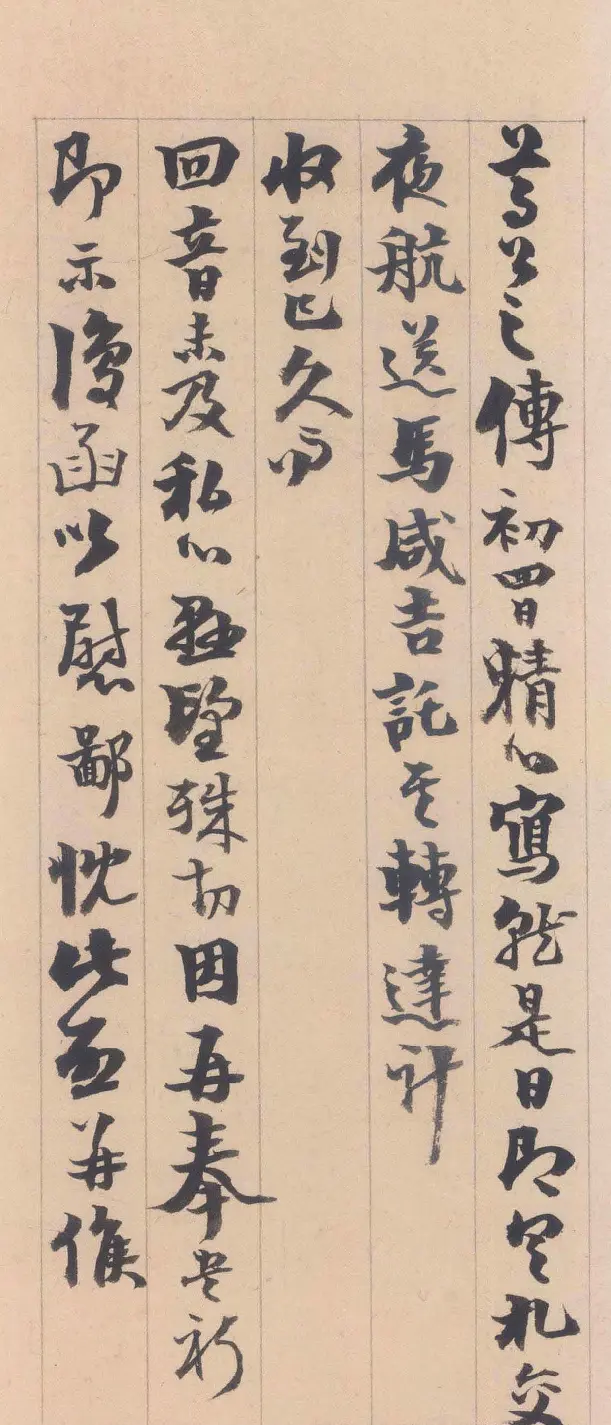 蒿公之傳初四日精心寫就是日即具札交
夜航送馬咸吉託其轉達計
收到已久而
回音未及私心懸望殊切因再奉告祈
即示復函以慰鄙忱此至并候